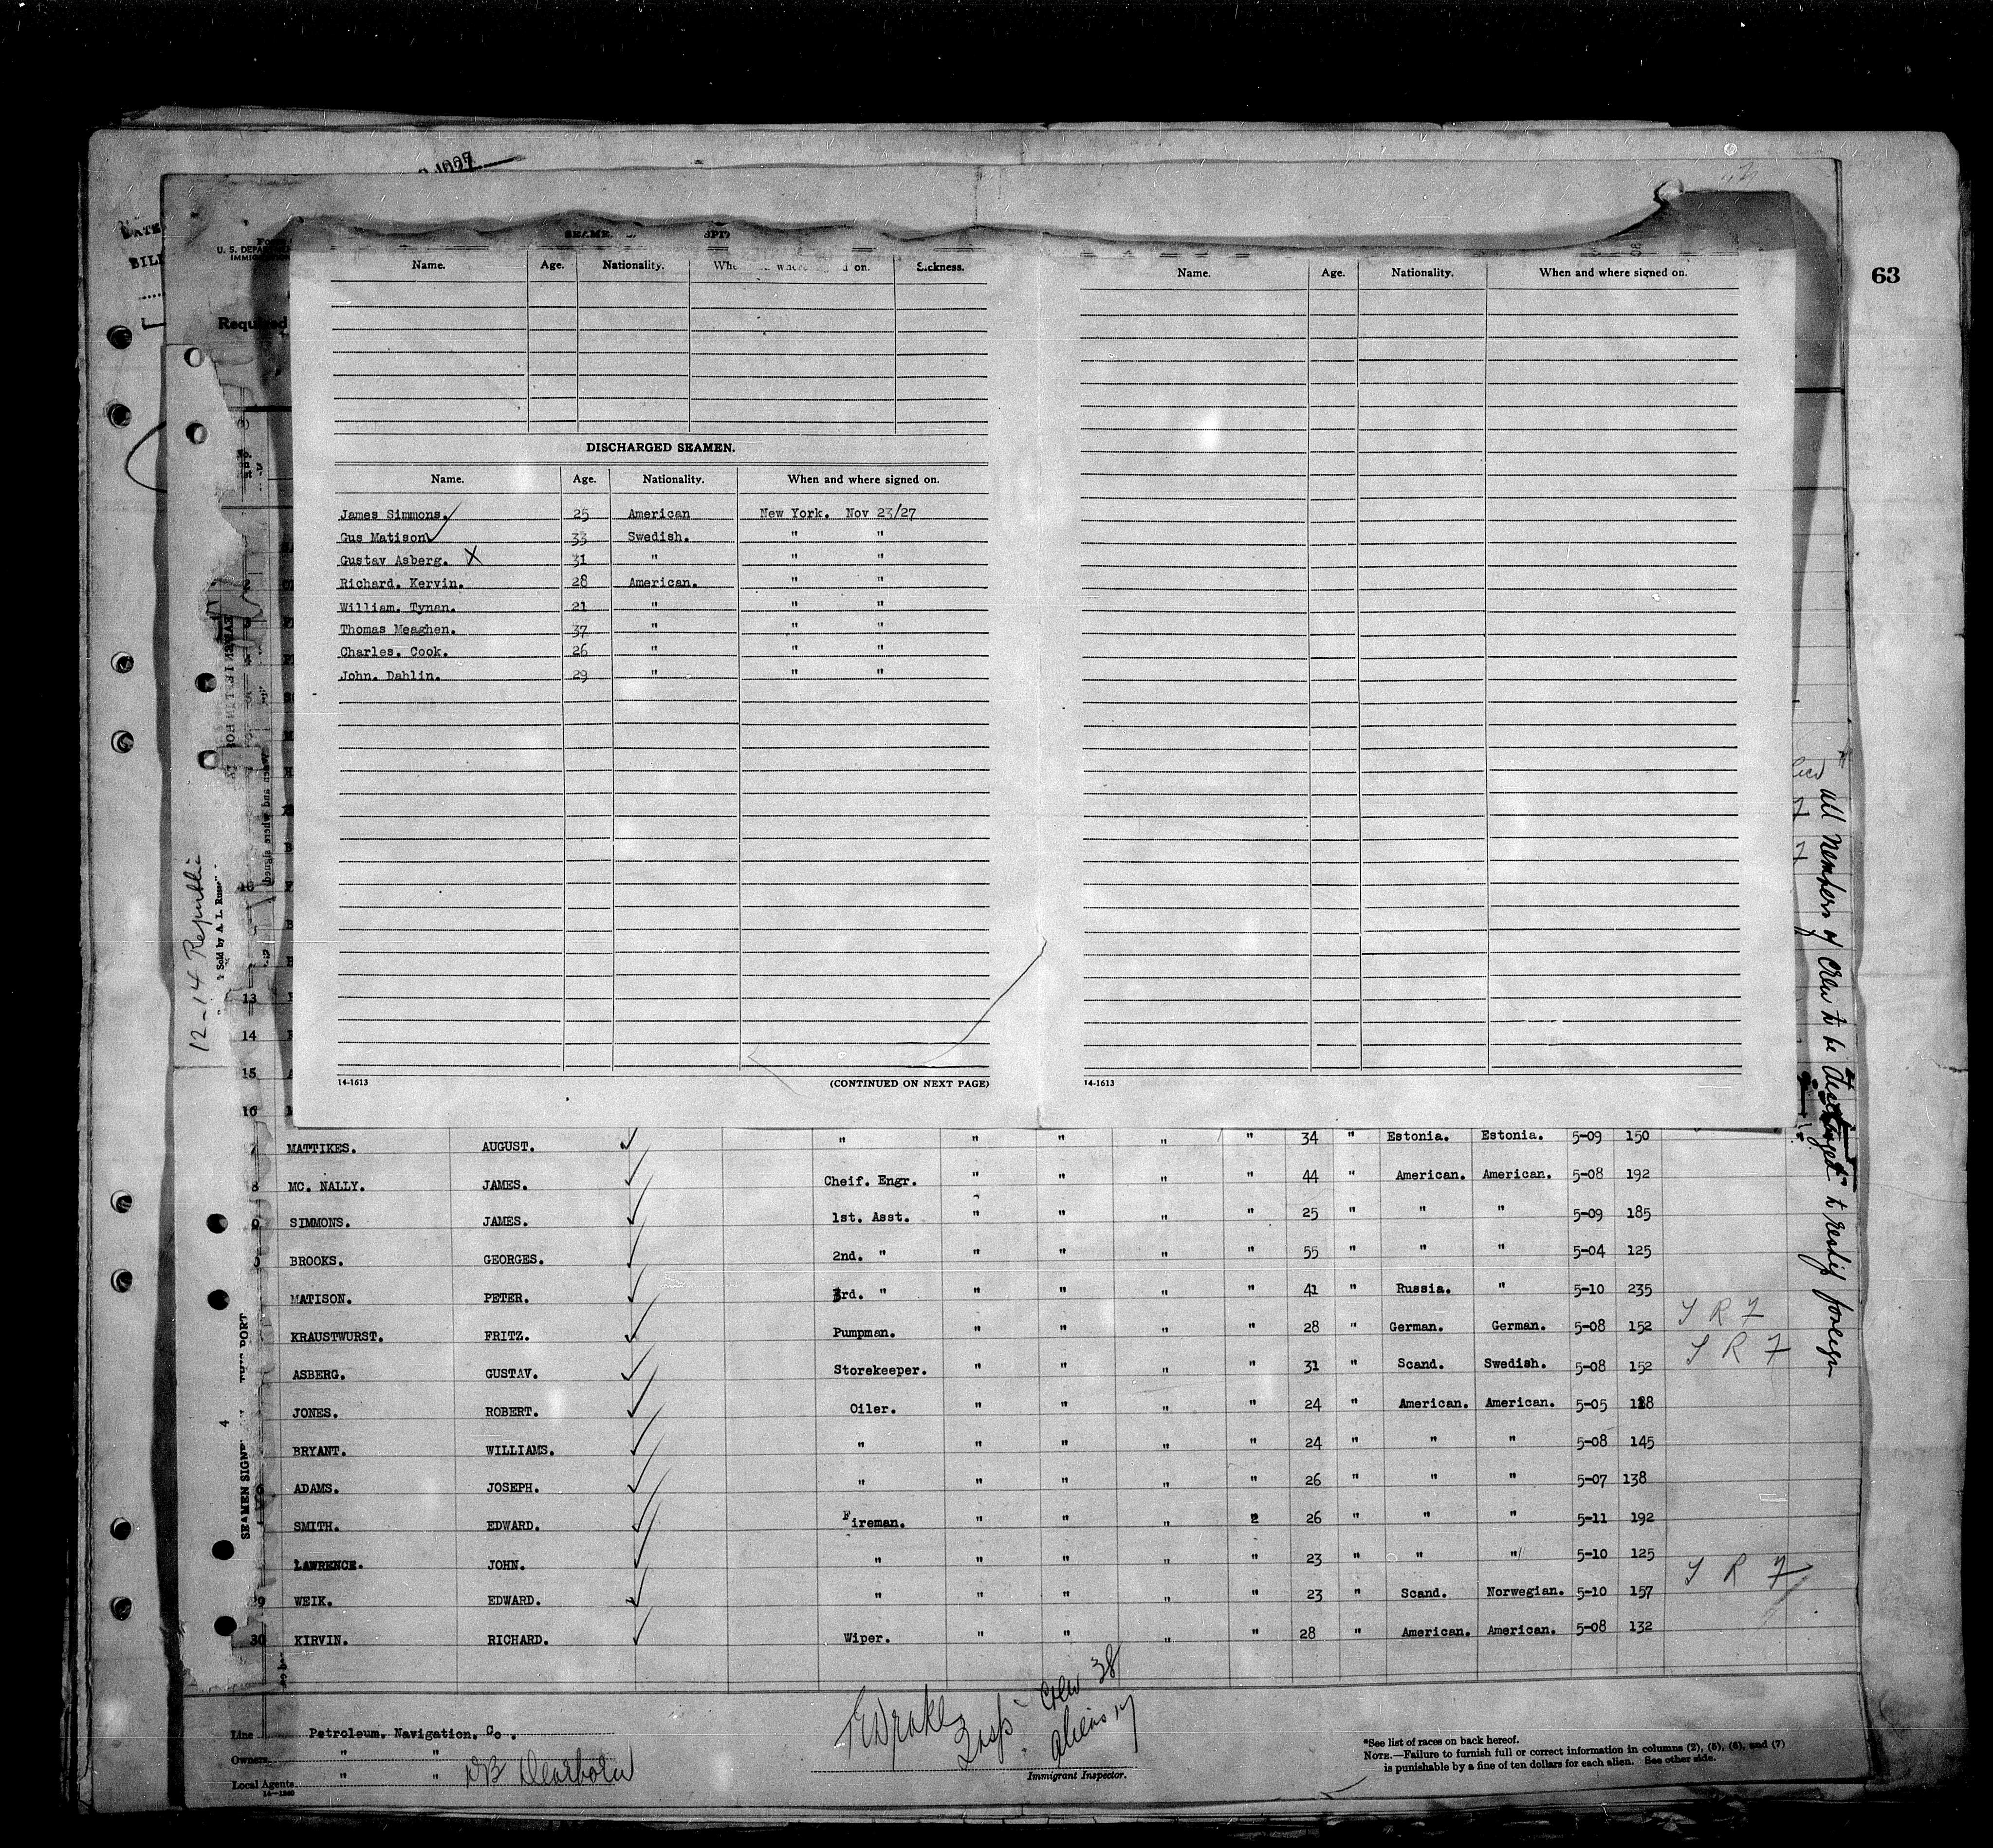 63
Name. Age. Nationality. where on. Sickness.
DISCHARGED SEAMEN.
Name. Age. Nationality. When and where signed on.
James Simmons. 25 American New York. Nov 23/27
Gus Matison 33 Swedish. " "
Gustav Asberg. X 31 " " "
Richard. Kervin. 28 American. " "
William. Tynan. 21 " " "
Thomas Meaghen. 37 " " "
Charles. Cook. 26 " " "
John. Dahlin. 29 " " "
14-1613 (CONTINUED ON NEXT PAGE)
Name. Age. Nationality. When and where signed on.
14-1613
Required
12-14 Republic
Sold by A. L.
13
14
15
16
MATTIKES. AUGUST. " " " " " 34 " Estonia. Estonia. 5-09 150
8 MC. NALLY. JAMES. Cheif. Engr. " " " " 44 " American. American. 5-08 192
SIMMONS. JAMES. 1st. Asst. " " " " 25 " " " 5-09 185
BROOKS. GEORGES. 2nd. " " " " " 55 " " " 5-04 125
MATISON. PETER. 3rd. " " " " " 41 " Russia. " 5-10 235
KRAUSTWURST. FRITZ. Pumpman. " " " " 28 " German. German. 5-08 152
ASBERG. GUSTAV. Storekeeper. " " " " 31 " Scand. Swedish. 5-08 152
JONES. ROBERT. Oiler. " " " " 24 " American. American. 5-05
BRYANT. WILLIAMS. " " " " " 24 " " " 5-08 145
ADAMS. JOSEPH. " " " " " 26 " " " 5-07 138
SMITH. EDWARD. Fireman. " " " 2 26 " " " 5-11 192
LAWRENCE. JOHN. " " " " " 23 " " " 5-10 125
29 WEIK. EDWARD. " " " " " 23 " Scand. Norwegian. 5-10 157
30 KIRVIN. RICHARD. Wiper. " " " " 28 " American. American. 5-08 132
all members of crew to be discharged to reship foreign
SEAMEN SIGNE PORT
Line Petroleum. Navigation. Co.
Owners " "
Local Agents " " DB Dearborn
Crew 38
aliens 17
Immigrant Inspector.
*See list of races on back hereof.
NOTE.—Failure to furnish full or correct information in columns (2), (5), (6), and (7)
is punishable by a fine of ten dollars for each alien. See other side.